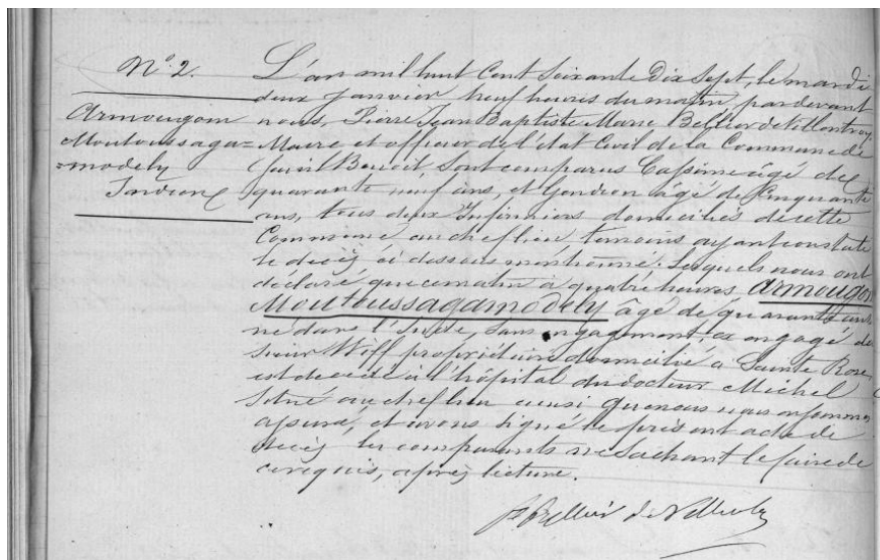 N° 2.
Armougom
Moutoussaga=
=modely
Indien
L'an mil huit Cent Soixante Dix Sept, le mardi
deux Janvier neuf heures du matin, pardevant
nous, Pierre Jean Baptiste Marie Bellier de Villentroy
Maire et officier de l'état Civil de la Commune de
Saint Benoit, sont comparus Cassime âgé de
quarante neuf ans, et Gondron âgé de Cinquante
ans, tous deux Infirmiers domiciliés de cette
Commune au cheflieu, temoins ayant constaté
le decès ci dessous mentionné. Lesquels nous ont
déclaré que ce matin à quatre heures Armougom
Moutoussagamodely âgé de quarante ans
né dans l'Inde, sans engagement, ex engagé du
Sieur Wiff propriétaire domicilié à Sainte Rose,
est decedé à l'hôpital du docteur Michel
Situé au cheflieu ainsi que nous nous en sommes
assuré, et avons signé le présent acte de
decès les comparants ne Sachant le faire de
ce requis, après lecture.
P Bellier de Villentroy